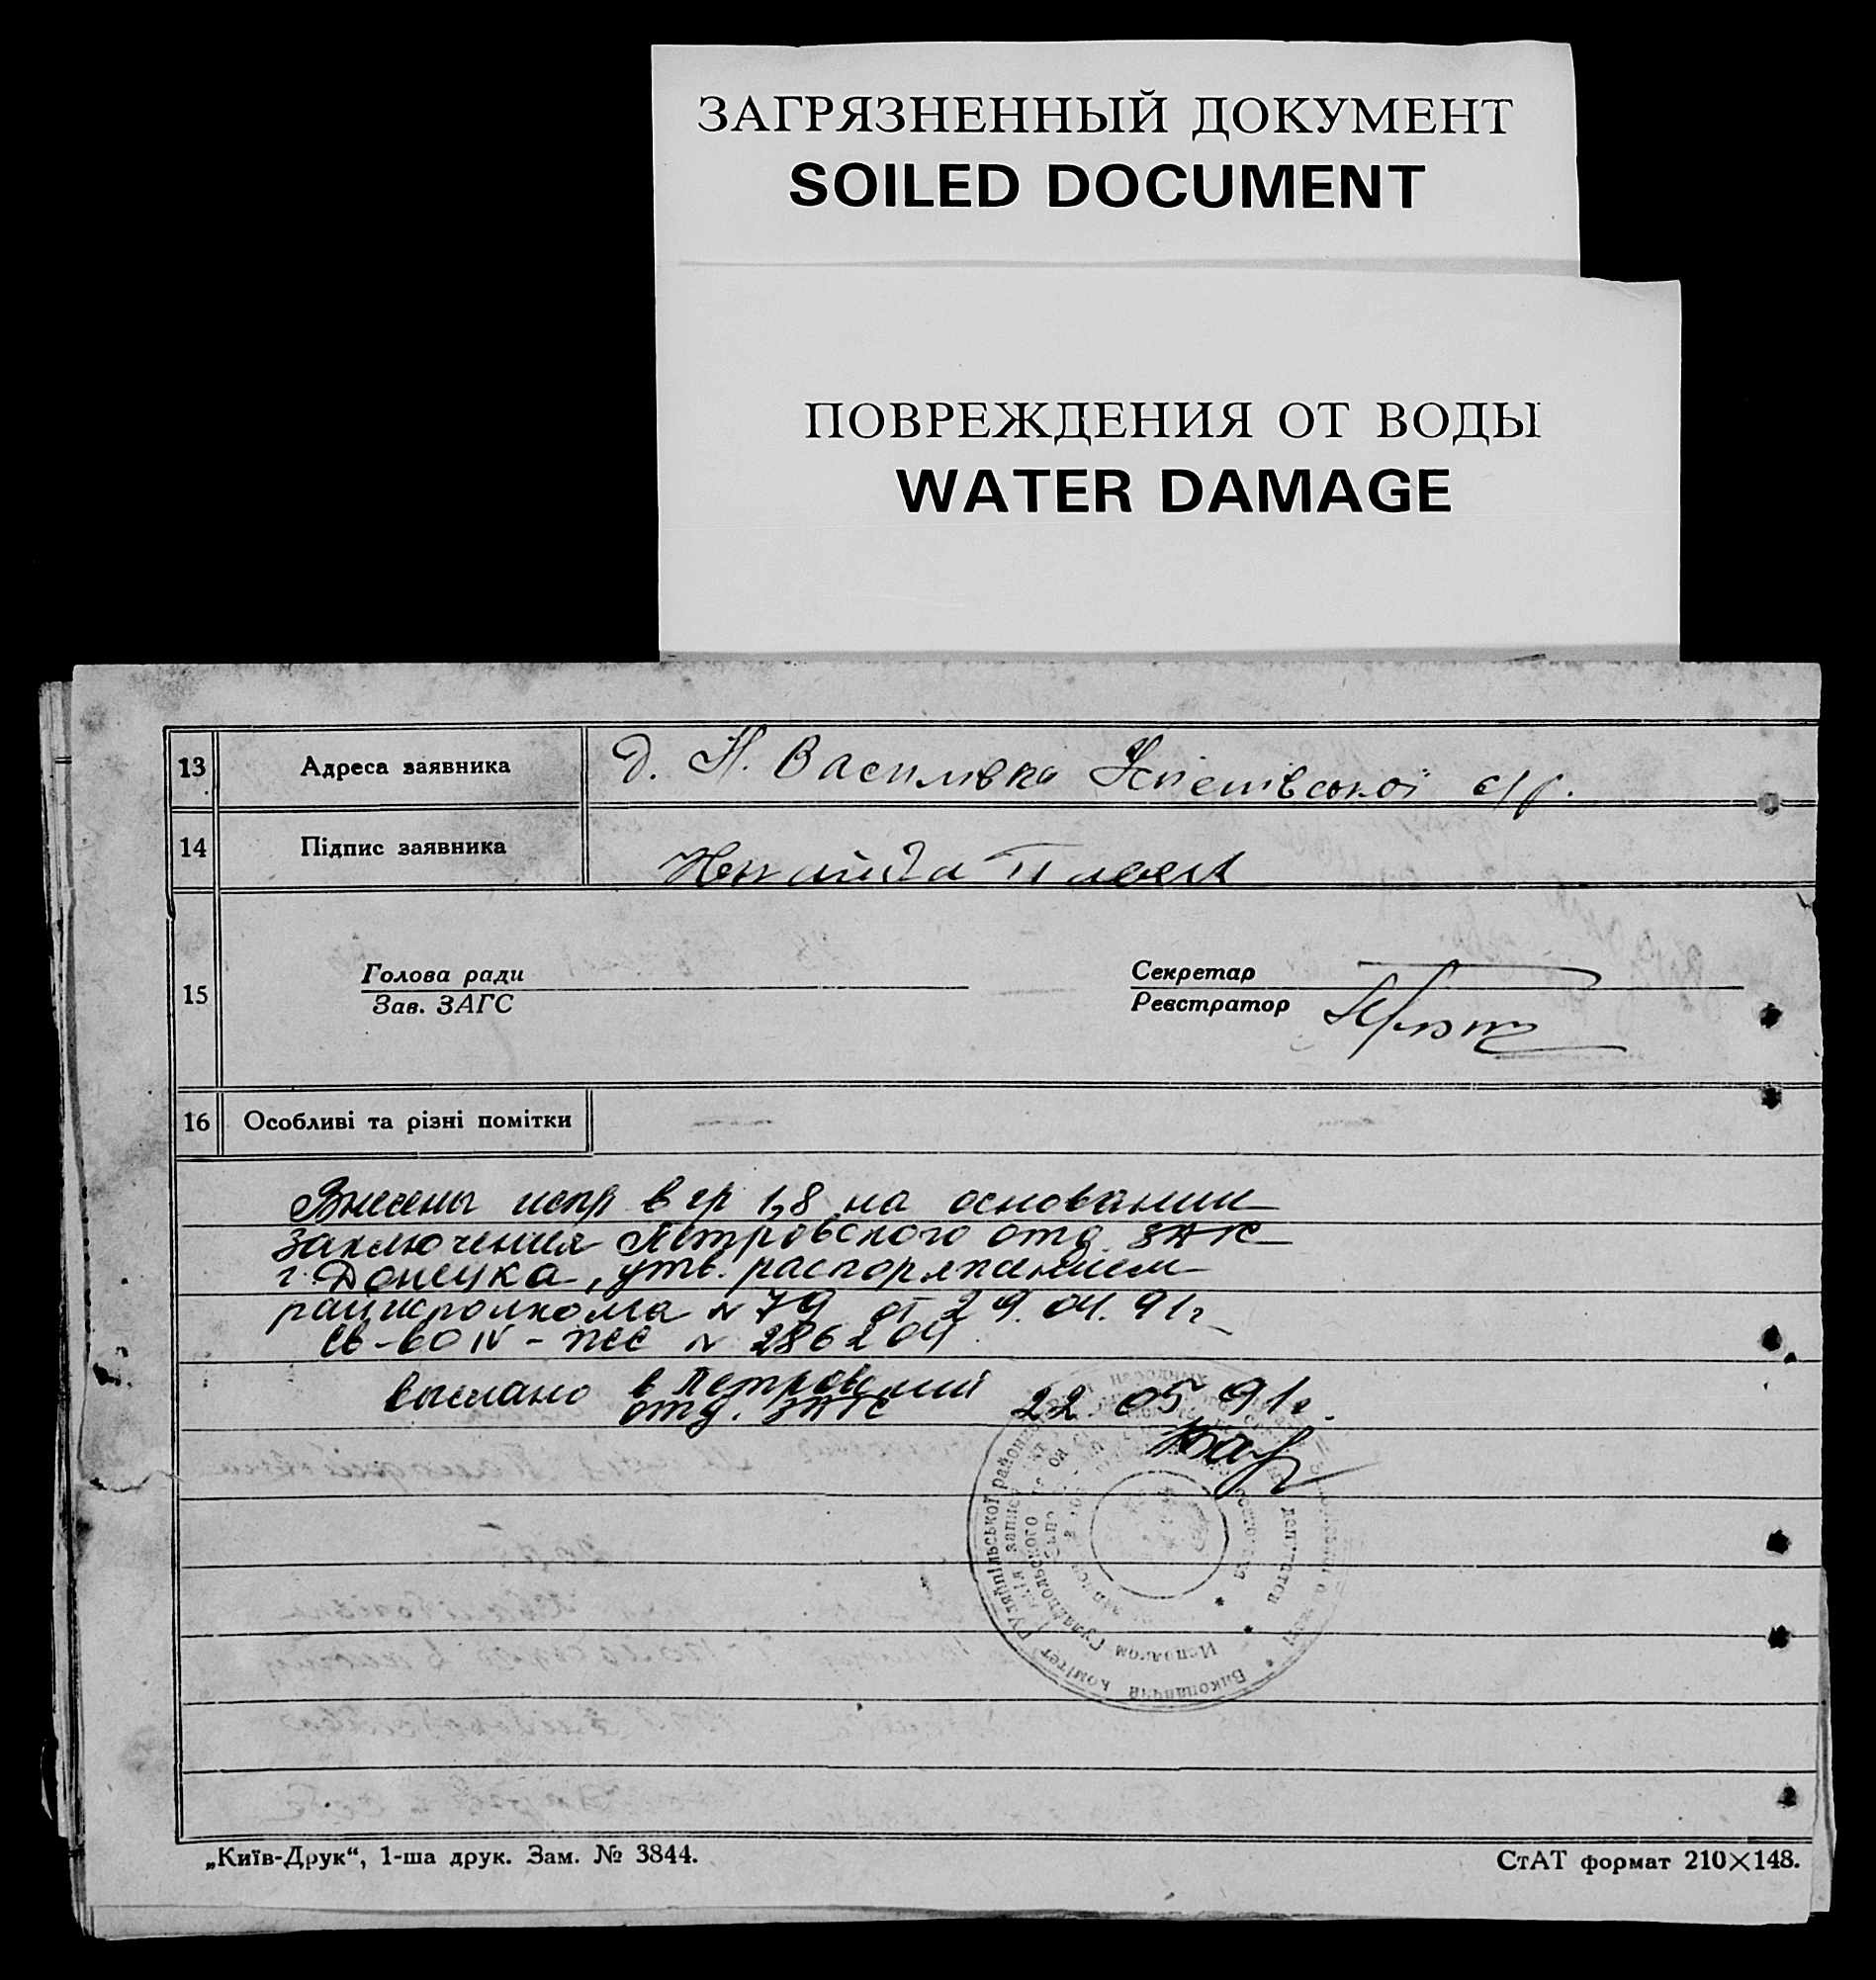 ЗАГРЯЗНЕННЫЙ ДОКУМЕНТ
SOILED DOCUMENT
ПОВРЕЖДЕНИЯ ОТ ВОДЫ
WATER DAMAGE
13 Адреса заявника Д. Н. Василівка с/р.
14 Підпис заявника Павел
15 Голова ради Секретар
Зав. ЗАГС Реєстратор
16 Особливі та різні помітки —
Внесены испр в гр 1,8 на основании
заключения Петровского отд. ЗАГС
г. Донецка, утв. распоряжением
райисполкома N 79 от 29.04.91г
св-во IV-ЖС N 286204
выслано в Петровский
отд. ЗАГС 22.05 91г.
Виконавчий комітет Гуляйпільської районної
Исполком Гуляйпольского
"Київ-Друк", 1-ша друк. Зам. № 3844.
СтАТ формат 210×148.